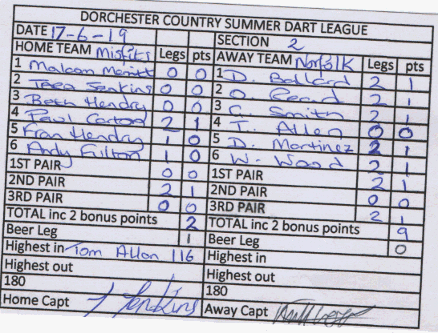 DORCHESTER COUNTRY SUMMER DART LEAGUE
DATE 17-6-19 SECTION 2
HOME TEAM Misfits Legs pts AWAY TEAM Norfolk Legs pts
1 Malcom 0 0 1 D. Ballard 2 1
2 Jenkins 0 0 2 O. 2 1
3 Beth Hendry 0 0 3 C. Smith 2 1
4 Paul Carton 2 1 4 T. Allen 0 0
5 Fran Hendry 1 0 5 D. Martinez 2 1
6 Andy Fulton 1 0 6 W. Wood 2 1
1ST PAIR 0 0 1ST PAIR 2 1
2ND PAIR 2 1 2ND PAIR 0 0
3RD PAIR 0 0 3RD PAIR 2 1
TOTAL inc 2 bonus points 2 TOTAL inc 2 bonus points 9
Beer Leg 1 Beer Leg 0
Highest in Tom Allan 116 Highest in
Highest out Highest out
180 180
Home Capt Jenkins Away Capt